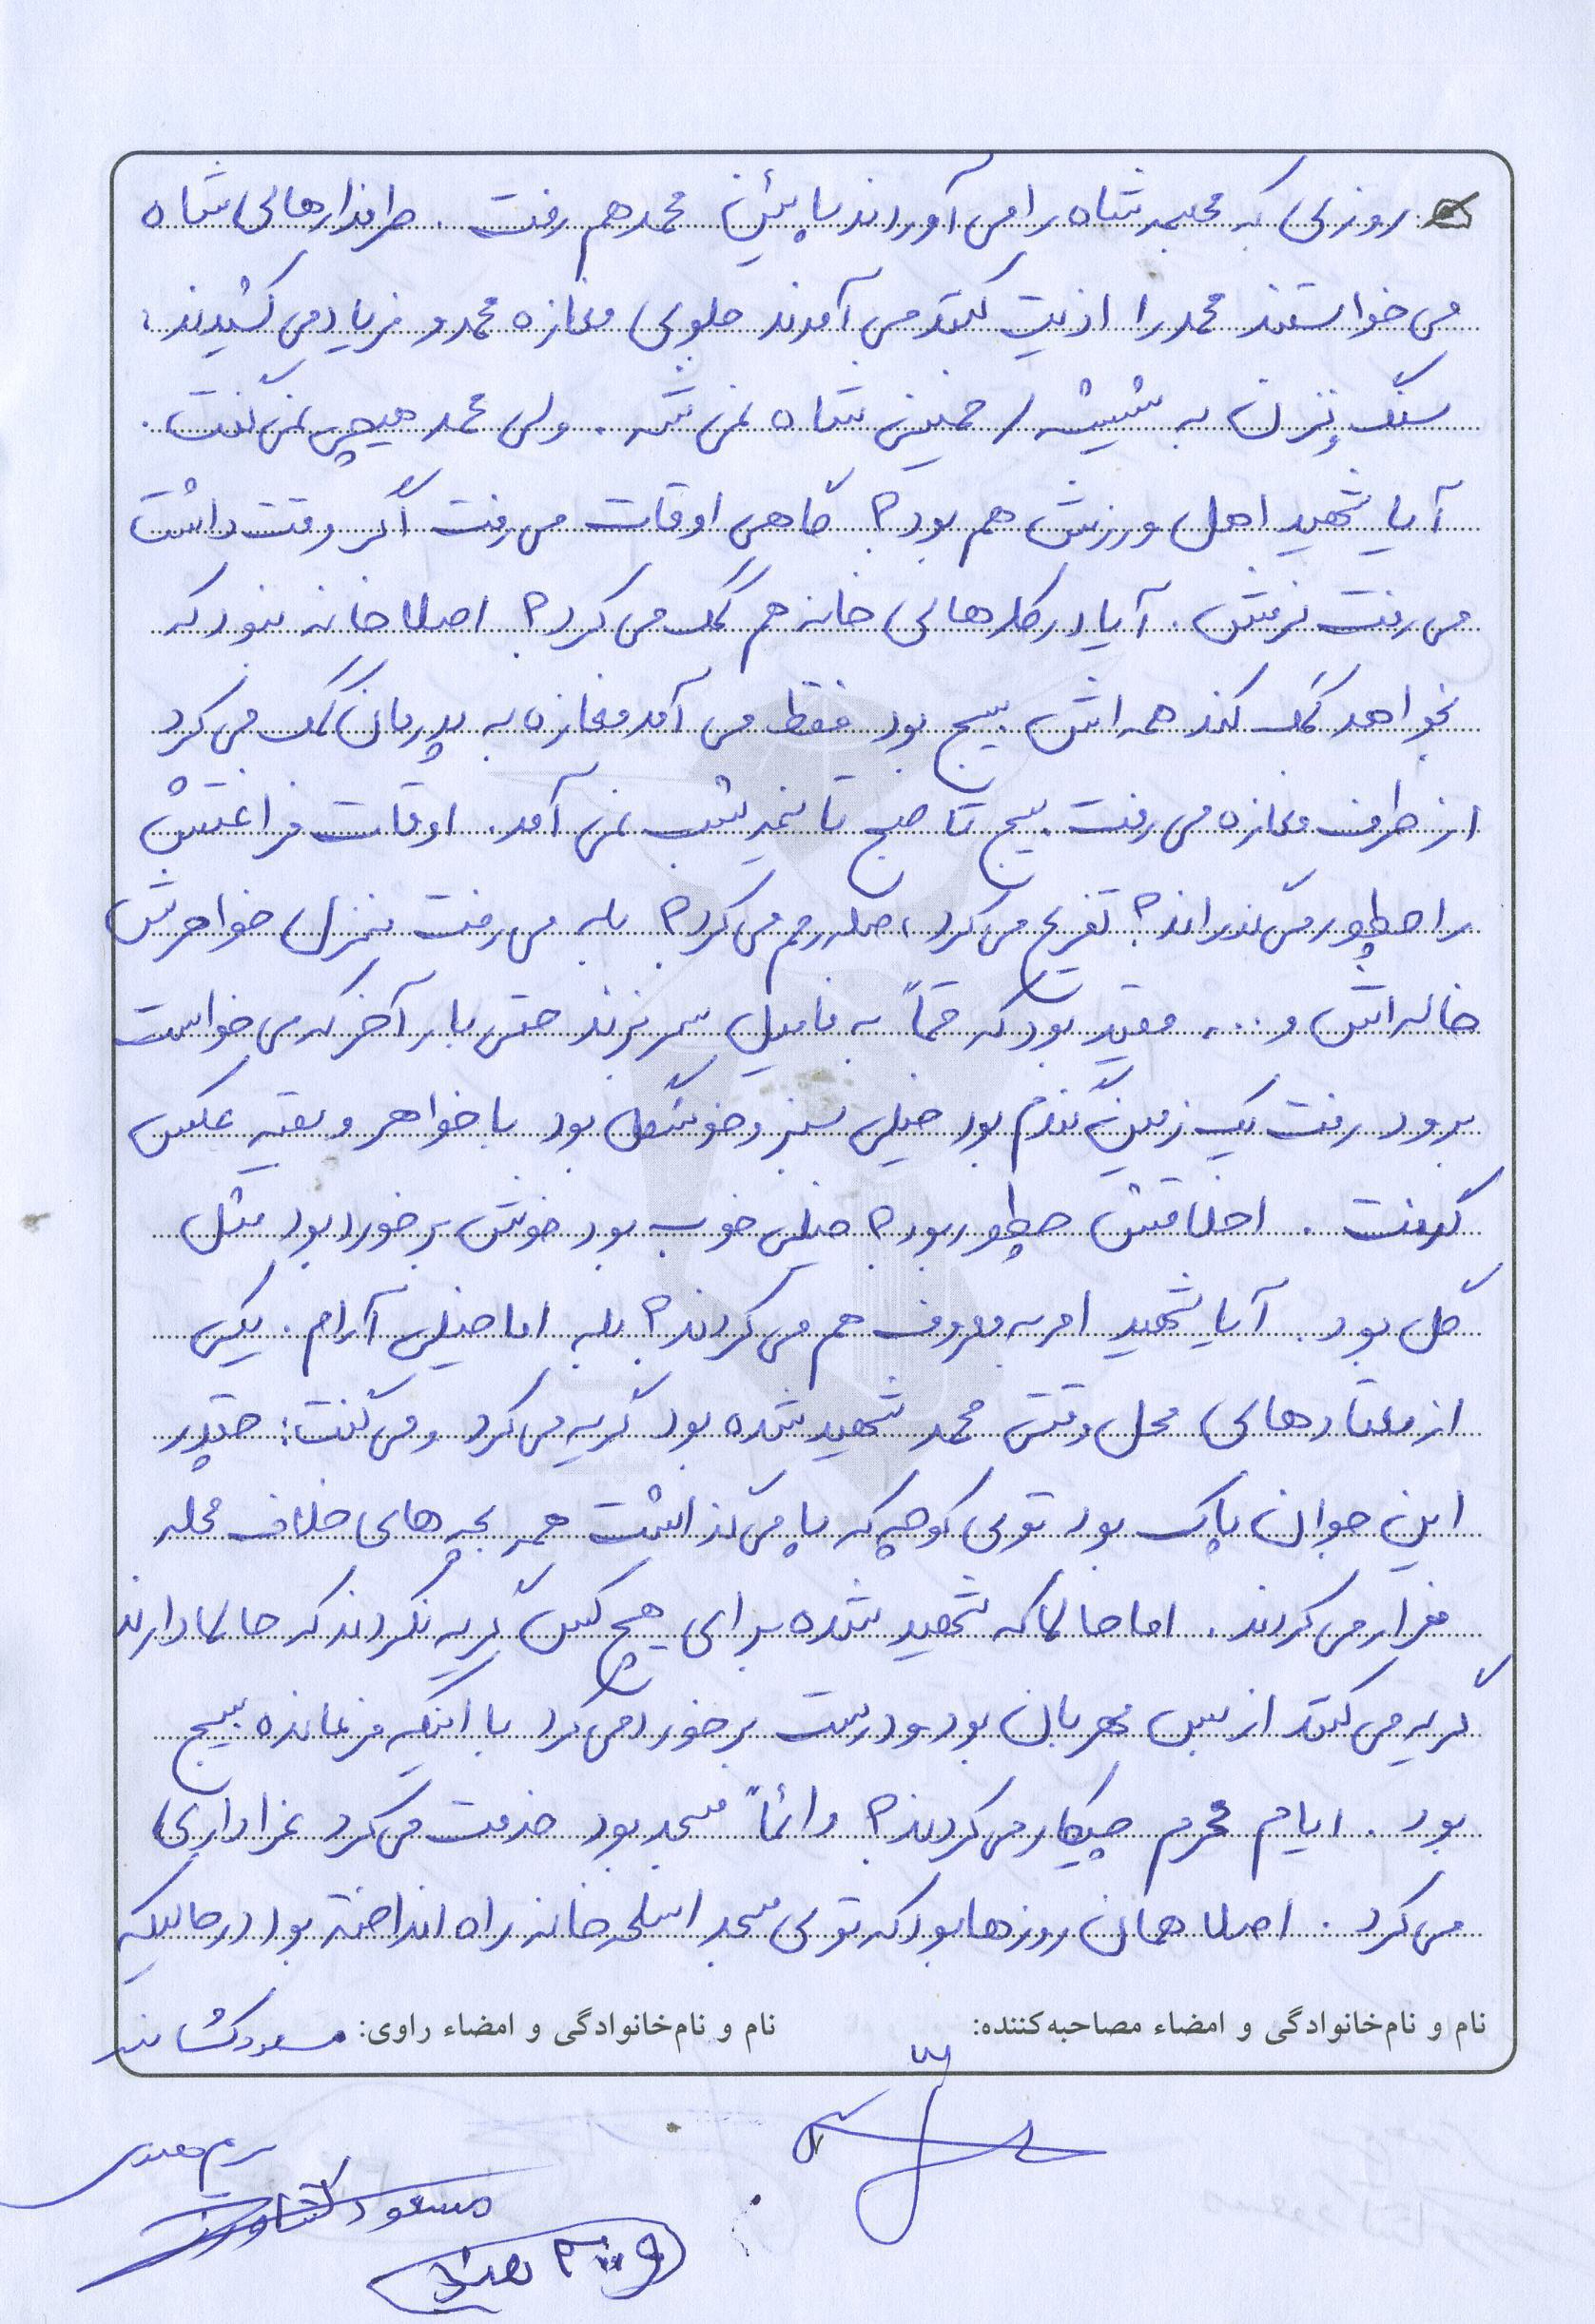 روزی که مجسمه شاه را می آوردند پایین محمد هم رفت . طرفدارهای شاه
می خواستند محمد را اذیت کنند می آمدند جلوی مغازه محمد و فریاد می کشیدند:
سنگ نزن به شیشه / خمینی شاه نمی شه . ولی محمد هیچی نمی گفت .
آیا شهید اهل ورزش هم بود؟ گاهی اوقات می رفت اگر وقت داشت
می رفت نرمش . آیا در کارهای خانه هم کمک می کرد؟ اصلا خانه نبود که
بخواهد کمک کند همه اش بسیج بود فقط می آمد مغازه به پدرمان کمک می کرد
از طرف مغازه می رفت بسیج تا صبح تا نیمه شب نمی آمد . اوقات فراغتش
را چطور می گذراند؟ تفریح می کرد، صله رحم می کرد؟ بله می رفت منزل خواهرش
خاله اش و ... مقید بود که حتماً به فامیل سر بزند حتی بار آخر که می خواست
برود رفت یک زمین گندم بود خیلی سبز و خوشگل بود با خواهر و بقیه عکس
گرفت . اخلاقش چطور بود؟ خیلی خوب بود خوش برخورد بود مثل
گل بود . آیا شهید امر به معروف هم می کردند؟ بله اما خیلی آرام . یکی
از معتادهای محل وقتی محمد شهید شده بود گریه می کرد و می گفت: چقدر
این جوان پاک بود توی کوچه که پا می گذاشت همه بچه های خلاف محله
فرار می کردند . اما حالا که شهید شده برای هیچ کس گریه نکردند که حالا دارند
گریه می کنند از بس مهربان بود و درست برخورد می کرد با اینکه فرمانده بسیج
بود . ایام محرم چیکار می کردند؟ دائماً مسجد بود خدمت می کرد عزاداری
می کرد . اصلا همان روزها بود که توی مسجد اسلحه خانه راه انداخته بود در حالیکه
نام و نام‌خانوادگی و امضاء مصاحبه‌کننده: نام و نام‌خانوادگی و امضاء راوی: مسعود
مسعود